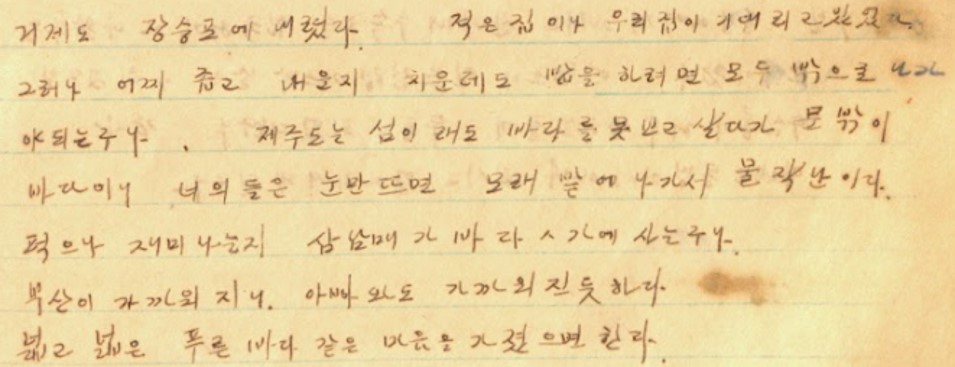 거제도 장승포에 내렸다. 적은 집이나 우리집이 기대리고 있었다.
그러나 어찌 좁고 내운지 치운데도 밥을 하려면 모두 밖으로 나가
야되는구나. 제주도는 섬이래도 바라를 못보고 살다가 문밖이
바다이니 너의들은 눈만뜨면 모래밭에 나가서 물작난이다.
퍽으나 재미나는지 삼남매가 바다ㅅ가에 사는구나.
부산이 가까워지니. 아빠와도 가까워진듯하다.
넓고 넓은 푸른 바다 같은 마음을 가졌으면 한다.